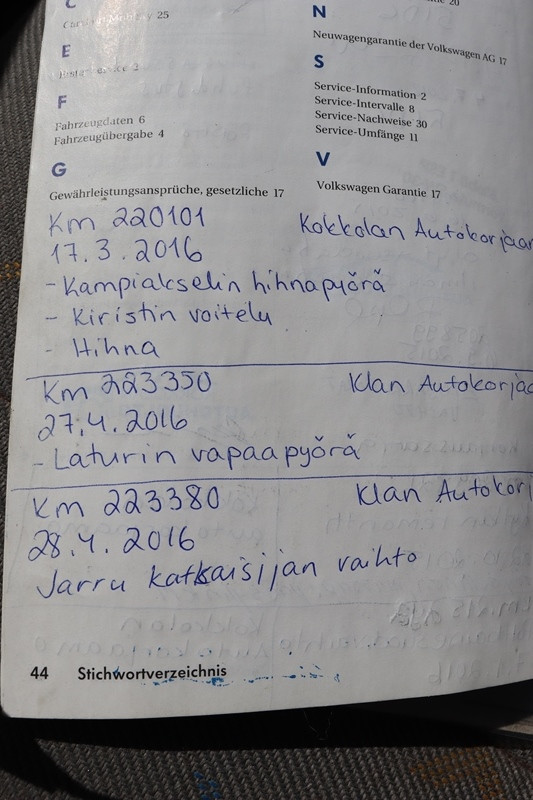 C
25
E
F
Fahrzeugdaten 6
Fahrzeugübergabe 4
G
Gewährleistungsansprüche, gesetzliche 17
20
N
Neuwagengarantie der Volkswagen AG 17
S
Service-Information 2
Service-Intervalle 8
Service-Nachweise 30
Service-Umfänge 11
V
Volkswagen Garantie 17
Km 220101 Kokkolan Autokorjaa
17.3.2016
- Kampiakselin hihnapyörä
- Kiristin voitelu
- Hihna
Km 223350 Klan Autokorja
27.4.2016
- Laturin vapaapyörä
Km 223380 Klan Autokorj
28.4.2016
Jarru katkaisijan vaihto
44 Stichwortverzeichnis